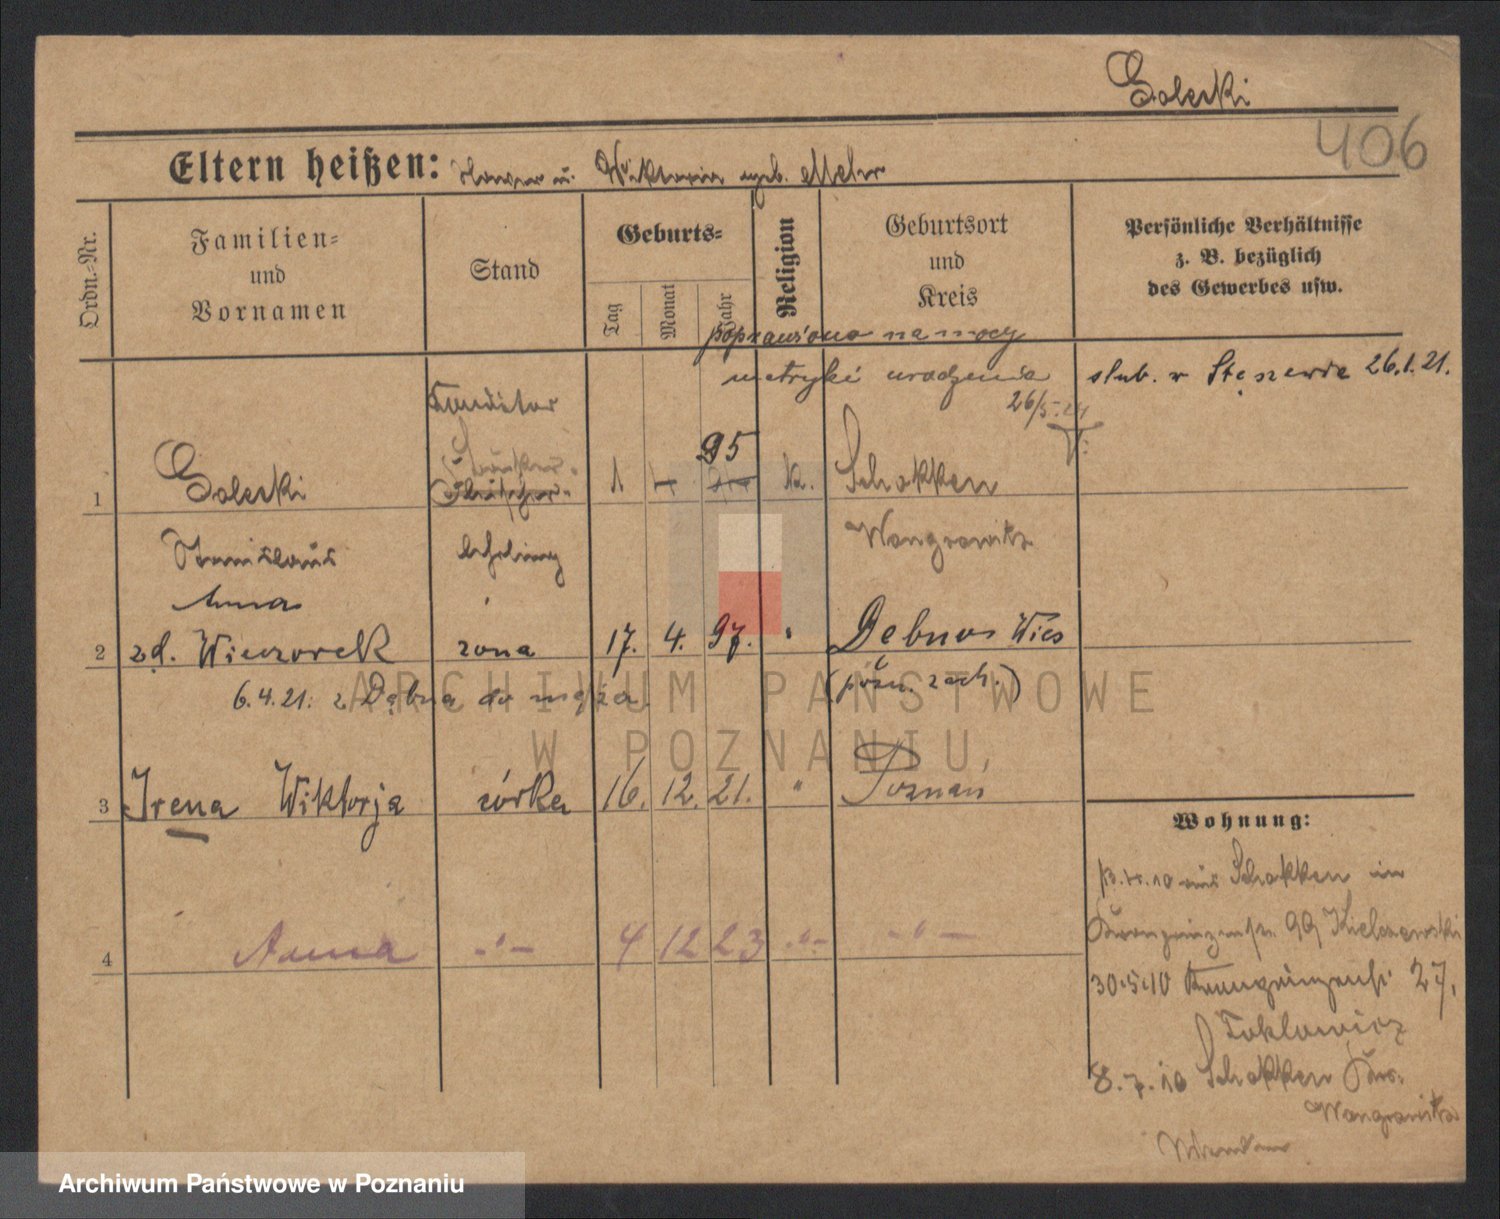 Golecki
406
Eltern heißen: u. Wiktoria geb.
Ordn.-Nr.
Familien-
und
Vornamen
Stand
Geburts-
Tag
Monat
Jahr
Religion
Geburtsort
und
Kreis
Persönliche Verhältnisse
z. B. bezüglich
des Gewerbes usw.
poprawiono na mocy
metryki urodzenia
26/5.24
ślub. w Stęszewie 26.1.21.
Konditor
95
1 Golecki 1 4 k. Schokken
Stanislaus lehrling Wongrowitz
Anna
2 zd. Wieczorek żona 17. 4. 97. " Dębno Wieś
6.4.21. z Dębna do męża (pozn. zach.)
3 Irena Wiktorja córka 16. 12. 21. " Poznań
4 Anna -"- 4 12 23 -"- -"-
Wohnung:
aus Schokken in
Kronprinzenstr. 99 Kielczewski
30.5.10 Kronprinzenstr. 27,
8.7.10 Schokken Krs.
Wongrowitz
ARCHIWUM PAŃSTWOWE
W POZNANIU
Archiwum Państwowe w Poznaniu